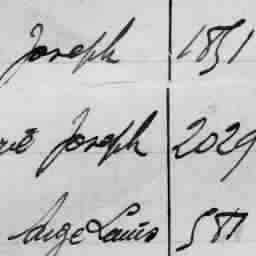 Joseph 1851
Joseph 2029
Ange Louis 511